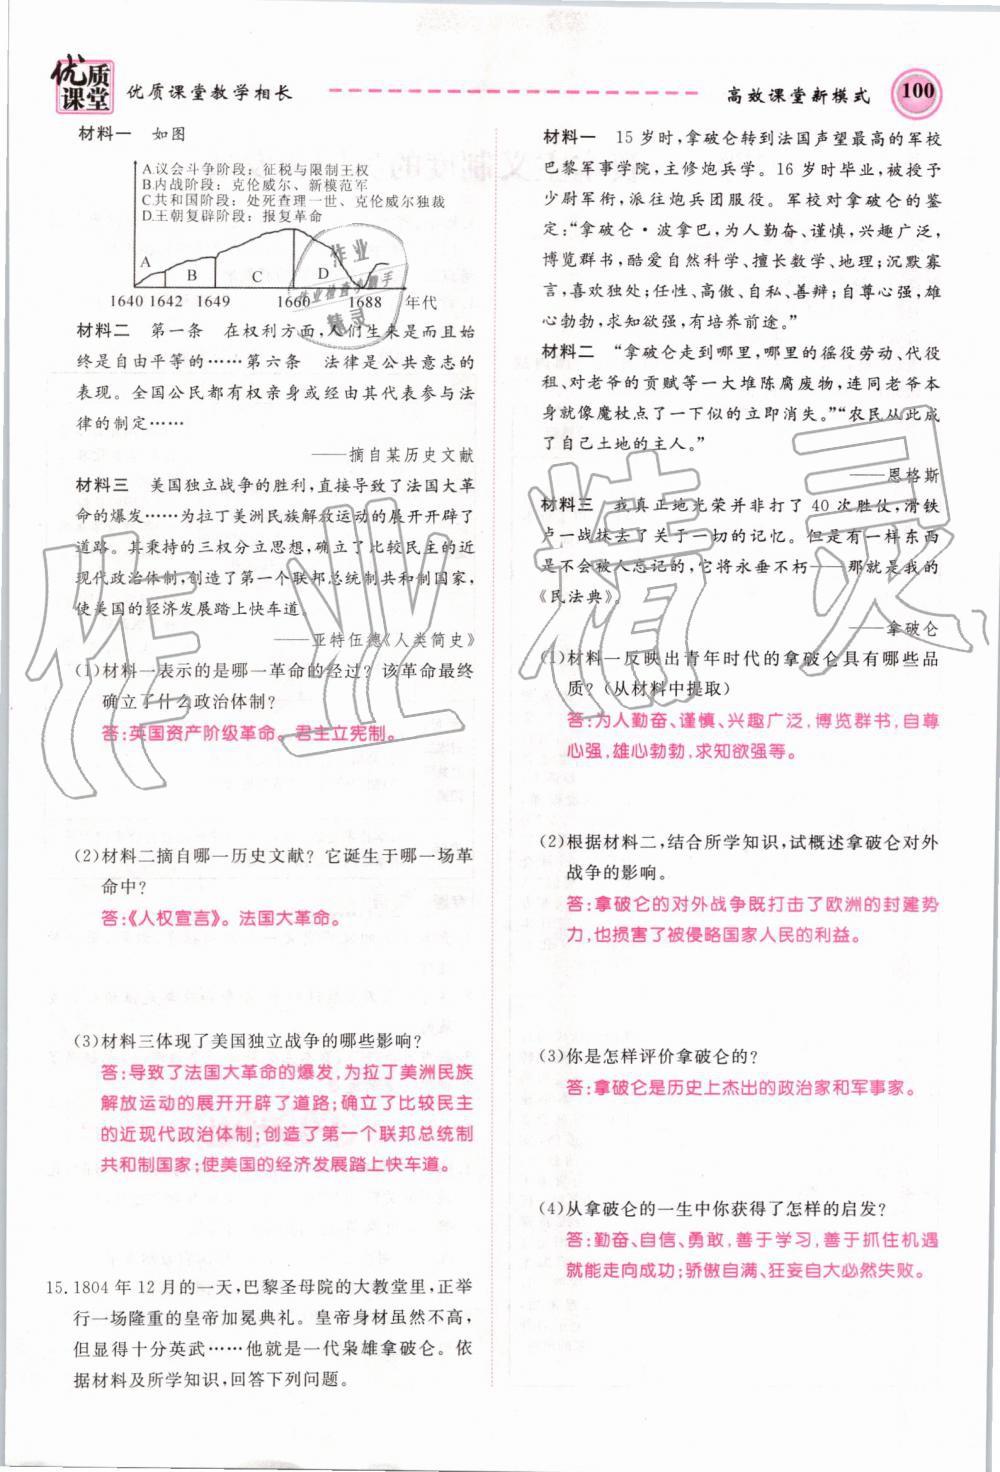 优质课堂
优质课堂教学相长
高效课堂新模式
100
材料一 如图
A.议会斗争阶段：征税与限制王权
B.内战阶段：克伦威尔、新模范军
C.共和国阶段：处死查理一世、克伦威尔独裁
D.王朝复辟阶段：报复革命
A B C D
1640 1642 1649 1660 1688 年代
材料二 第一条 在权利方面，人们生来是而且始
终是自由平等的……第六条 法律是公共意志的
表现。全国公民都有权亲身或经由其代表参与法
律的制定……
——摘自某历史文献
材料三 美国独立战争的胜利，直接导致了法国大革
命的爆发……为拉丁美洲民族解放运动的展开开辟了
道路。其秉持的三权分立思想，确立了比较民主的近
现代政治体制，创造了第一个联邦总统制共和制国家，
使美国的经济发展踏上快车道。
——亚特伍德《人类简史》
(1)材料一表示的是哪一革命的经过？该革命最终
确立了什么政治体制？
答：英国资产阶级革命。君主立宪制。
(2)材料二摘自哪一历史文献？它诞生于哪一场革
命中？
答：《人权宣言》。法国大革命。
(3)材料三体现了美国独立战争的哪些影响？
答：导致了法国大革命的爆发，为拉丁美洲民族
解放运动的展开开辟了道路；确立了比较民主
的近现代政治体制；创造了第一个联邦总统制
共和制国家；使美国的经济发展踏上快车道。
15.1804 年 12 月的一天，巴黎圣母院的大教堂里，正举
行一场隆重的皇帝加冕典礼。皇帝身材虽然不高，
但显得十分英武……他就是一代枭雄拿破仑。依
据材料及所学知识，回答下列问题。
材料一 15 岁时，拿破仑转到法国声望最高的军校
巴黎军事学院，主修炮兵学。16 岁时毕业，被授予
少尉军衔，派往炮兵团服役。军校对拿破仑的鉴
定：“拿破仑·波拿巴，为人勤奋、谨慎，兴趣广泛，
博览群书，酷爱自然科学、擅长数学、地理；沉默寡
言，喜欢独处；任性、高傲、自私、善辩；自尊心强，雄
心勃勃，求知欲强，有培养前途。”
材料二 “拿破仑走到哪里，哪里的徭役劳动、代役
租、对老爷的贡赋等一大堆陈腐废物，连同老爷本
身就像魔杖点了一下似的立即消失。”“农民从此成
了自己土地的主人。”
——恩格斯
材料三 我真正地光荣并非打了 40 次胜仗，滑铁
卢一战抹去了关于一切的记忆。但是有一样东西
是不会被人忘记的，它将永垂不朽——那就是我的
《民法典》。
——拿破仑
(1)材料一反映出青年时代的拿破仑具有哪些品
质？（从材料中提取）
答：为人勤奋、谨慎、兴趣广泛，博览群书，自尊
心强，雄心勃勃，求知欲强等。
(2)根据材料二，结合所学知识，试概述拿破仑对外
战争的影响。
答：拿破仑的对外战争既打击了欧洲的封建势
力，也损害了被侵略国家人民的利益。
(3)你是怎样评价拿破仑的？
答：拿破仑是历史上杰出的政治家和军事家。
(4)从拿破仑的一生中你获得了怎样的启发？
答：勤奋、自信、勇敢，善于学习，善于抓住机遇
就能走向成功；骄傲自满、狂妄自大必然失败。
作业精灵
作业
作业检查小助手
精灵